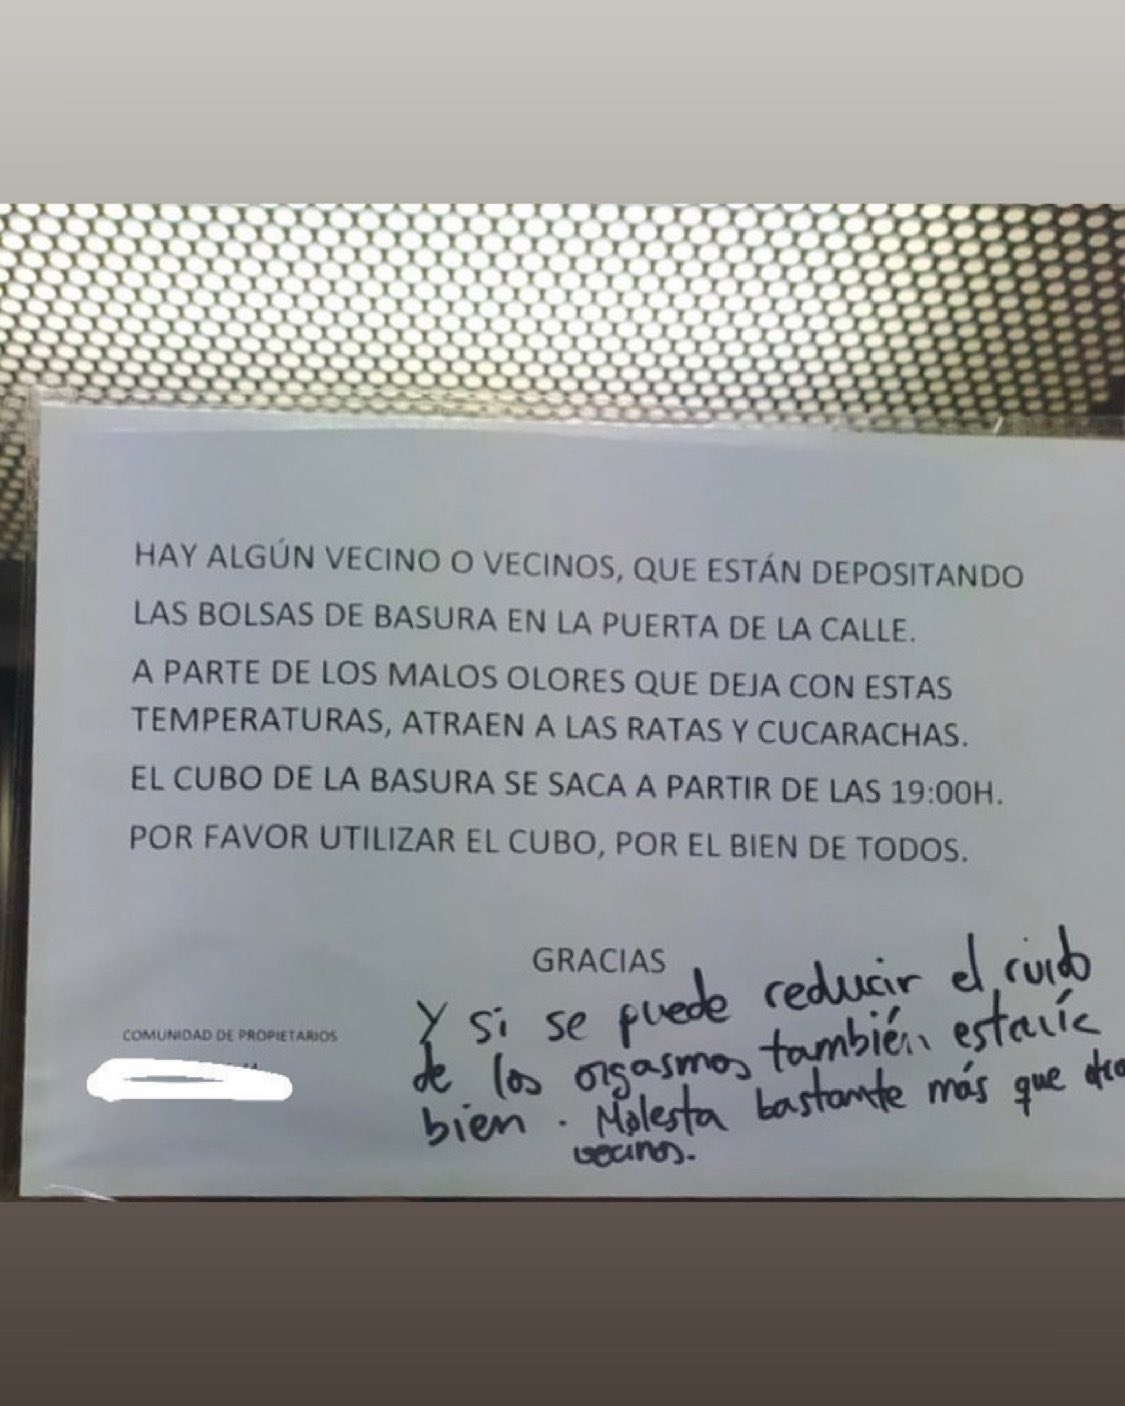 HAY ALGÚN VECINO O VECINOS, QUE ESTÁN DEPOSITANDO
LAS BOLSAS DE BASURA EN LA PUERTA DE LA CALLE.
A PARTE DE LOS MALOS OLORES QUE DEJA CON ESTAS
TEMPERATURAS, ATRAEN A LAS RATAS Y CUCARACHAS.
EL CUBO DE LA BASURA SE SACA A PARTIR DE LAS 19:00H.
POR FAVOR UTILIZAR EL CUBO, POR EL BIEN DE TODOS.
GRACIAS
COMUNIDAD DE PROPIETARIOS
Y si se puede reducir el ruido
de los orgasmos también estaría
bien. Molesta bastante más que
vecinos.